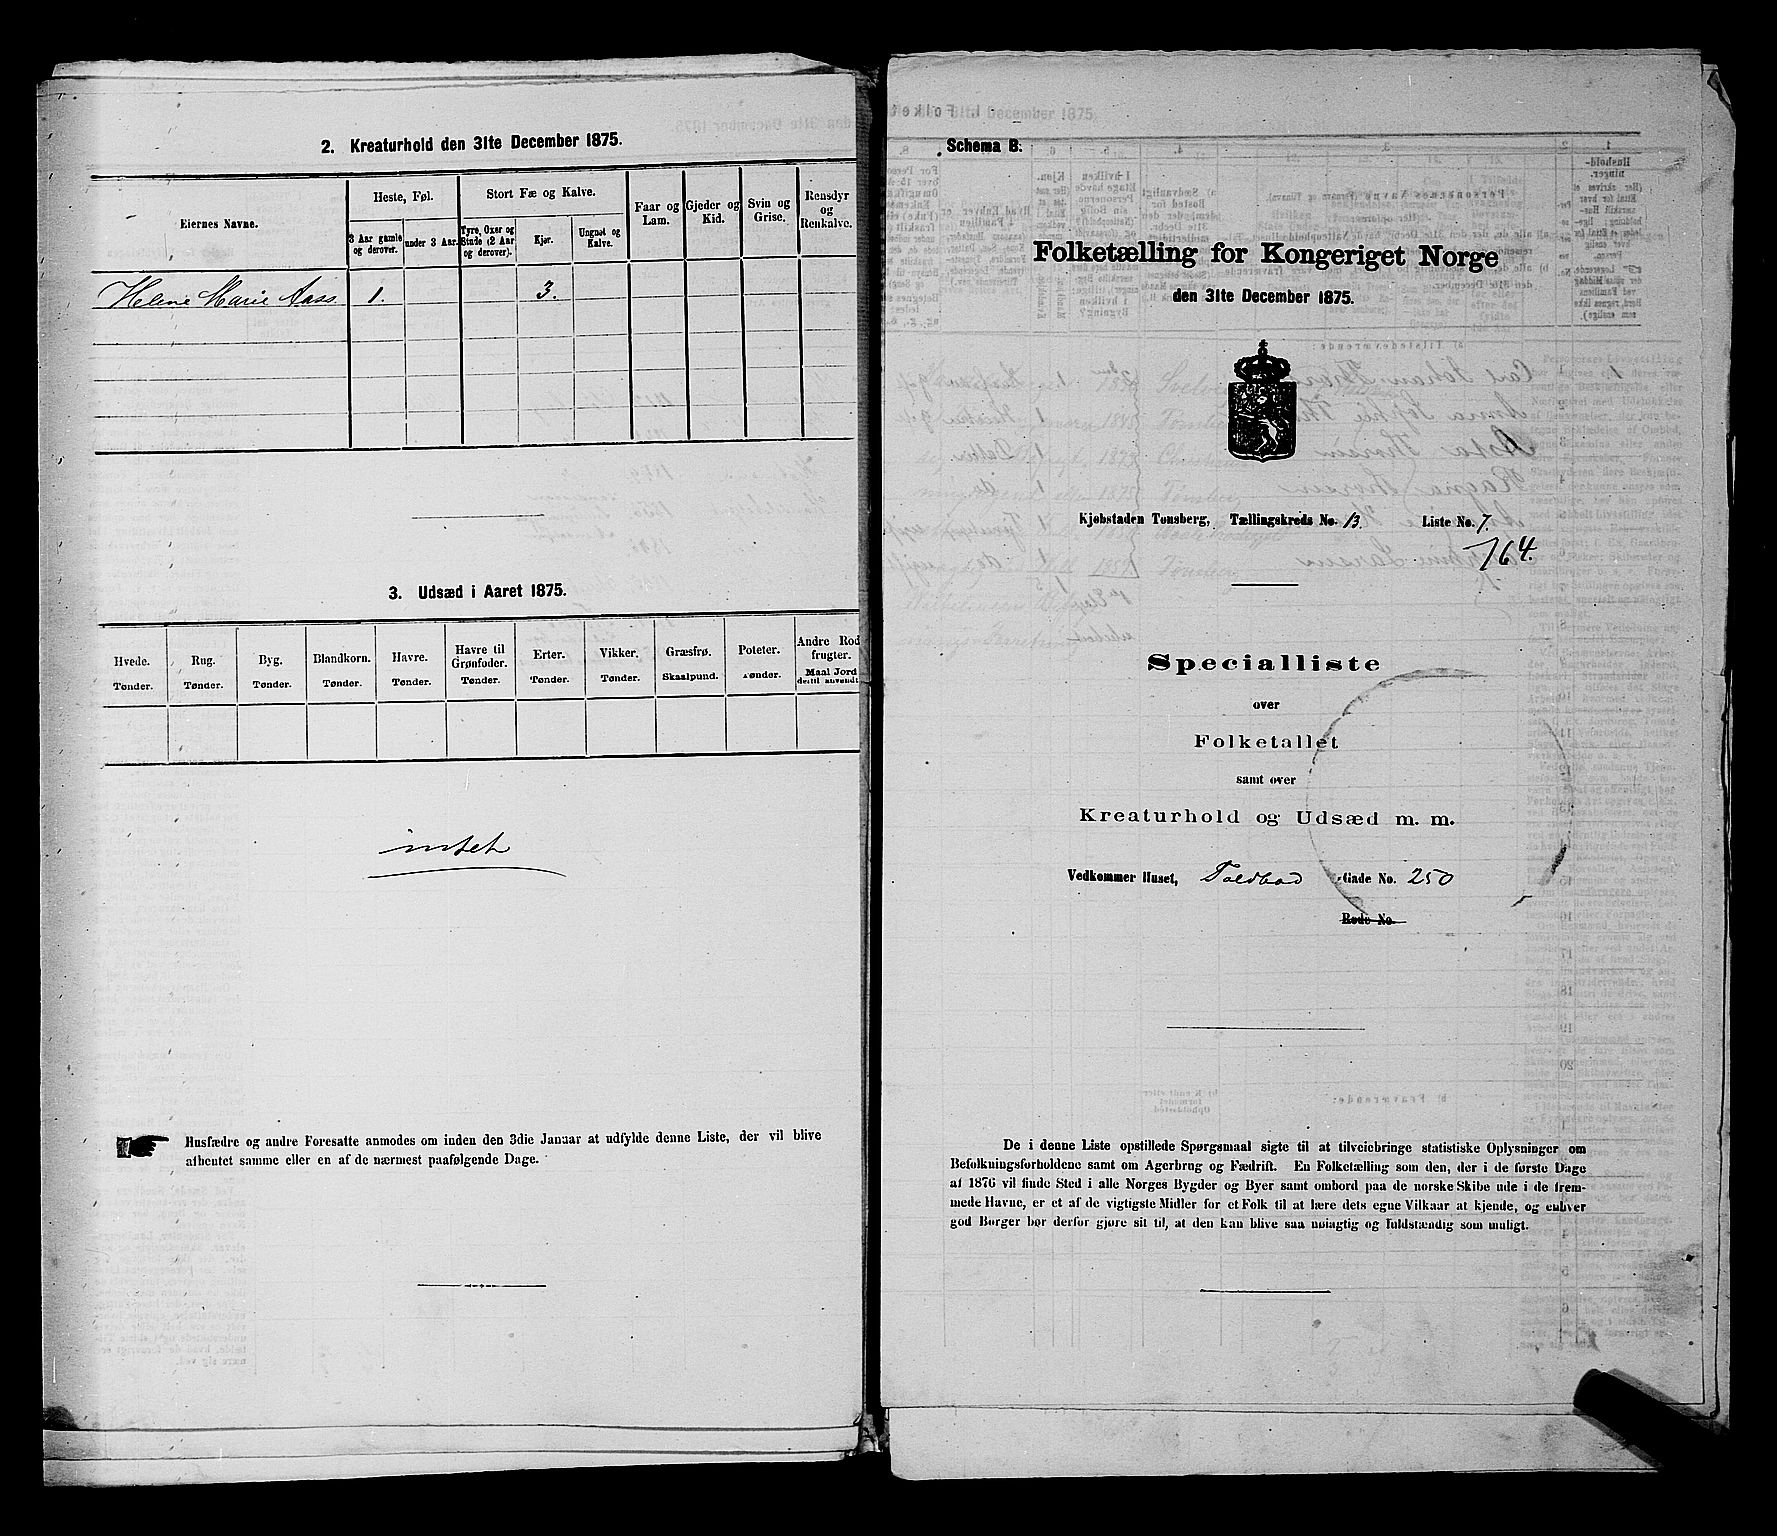 2. Kreaturhold den 31te December 1875.
Eiernes Navne.
Heste, Føl.
Stort Fæ og Kalve.
Faar og Lam.
Gjeder og Kid.
Svin og Grise.
Rensdyr og Renkalve.
3 Aar gamle og derover.
under 3 Aar.
Tyre, Oxer og Stude (2 Aar og derover).
Kjør.
Ungnøt og Kalve.
Helene Marie Aass 1. 3.
3. Udsæd i Aaret 1875.
Hvede. Tønder.
Rug. Tønder.
Byg. Tønder.
Blandkorn. Tønder.
Havre. Tønder.
Havre til Grønfoder. Tønder.
Erter. Tønder.
Vikker. Tønder.
Græsfrø. Skaalpund.
Poteter. Tønder.
Andre Rodfrugter. Maal Jord dertil anvendt.
intet
Husfædre og andre Foresatte anmodes om inden den 3die Januar at udfylde denne Liste, der vil blive
afhentet samme eller en af de nærmest paafølgende Dage.
Schema B.
Folketælling for Kongeriget Norge
den 31te December 1875.
Kjøbstaden Tønsberg, Tællingskreds No. 13. Liste No. 7.
764.
Specialliste
over
Folketallet
samt over
Kreaturhold og Udsæd m. m.
Vedkommer Huset, Toldbod Gade No. 250
Rode No.
De i denne Liste opstillede Spørgsmaal sigte til at tilveiebringe statistiske Oplysninger om
Befolkningsforholdene samt om Agerbrug og Fædrift. En Folketælling som den, der i de første Dage
af 1876 vil finde Sted i alle Norges Bygder og Byer samt ombord paa de norske Skibe ude i de frem-
mede Havne, er et af de vigtigste Midler for et Folk til at lære dets egne Vilkaar at kjende, og enhver
god Borger bør derfor gjøre sit til, at den kan blive saa nøiagtig og fuldstændig som muligt.